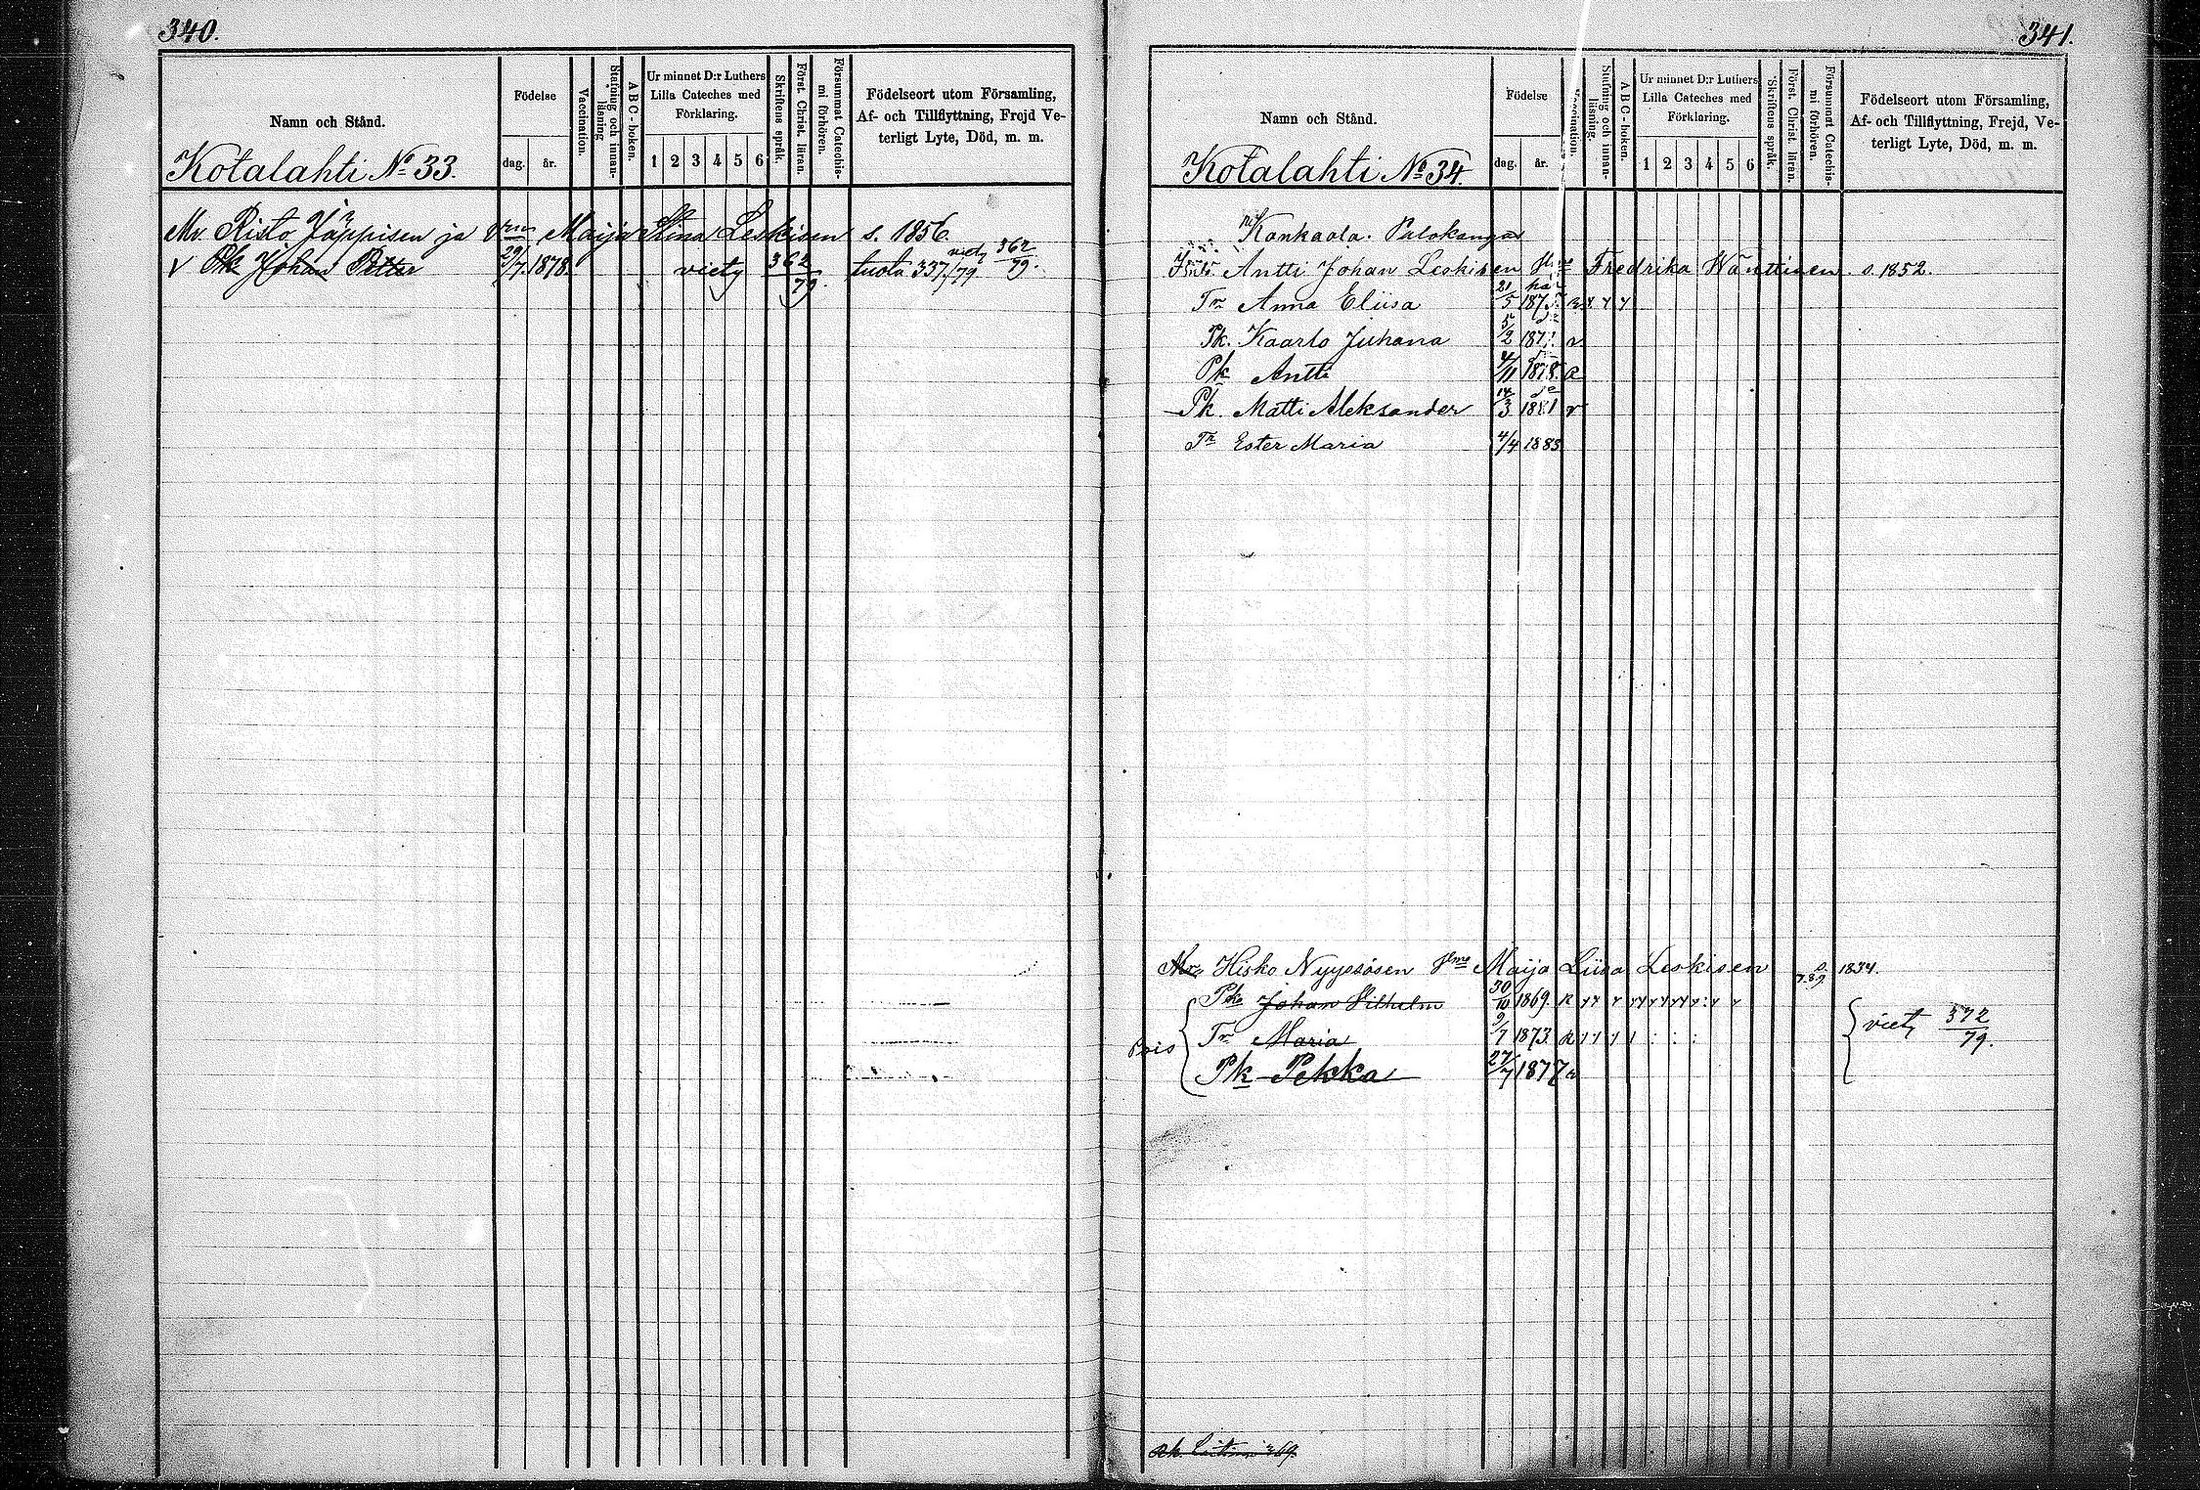 340.
Namn och Stånd.
Födelse
dag.
år.
Vaccination.
Stafning och innan-
läsning
ABC-boken.
Ur minnet D:r Luthers
Lilla Cateches med
Förklaring.
1 2 3 4 5 6
Skriftens språk.
Först. Christ. läran.
Försummat Catechis-
mi förhören.
Födelseort utom Församling,
Af- och Tillflyttning, Frejd Ve-
terligt Lyte, Död, m. m.
Kotalahti No 33.
Mv. Risto Jäppisen ja Vmn Maija Stina Leskisen s. 1856.
v Pk Johan Petter 29/7 1878. viety 362/79. tuotu 337/79. viety 362/79.
341.
Namn och Stånd.
Födelse
dag.
år.
Vaccination.
Stafning och innan-
läsning.
ABC-boken.
Ur minnet D:r Luthers
Lilla Cateches med
Förklaring.
1 2 3 4 5 6
Skriftens språk.
Först. Christ. läran.
Försummat Catechis-
mi förhören.
Födelseort utom Församling,
Af- och Tillflyttning, Frejd, Ve-
terligt Lyte, Död, m. m.
Kotalahti No 34.
Kankaala. Palokangas
Antti Johan Leskisen Fredrika Wänttinen. s. 1852.
Tr Anna Eliisa 21/5 187
Pk. Kaarlo Juhana 5/2 187
Pk Antti 4/11 1878.
Pk. Matti Aleksander 14/3 1881 v
Tr Ester Maria 4/4 1883
Mv. Hisko Nyyssösen Maija Liisa Leskisen s. 1834.
Pk Johan Vilhelm 30/10 1869.
Pois Tr Maria 9/7 1873. viety 372/79.
Pk Pekka 27/7 1877